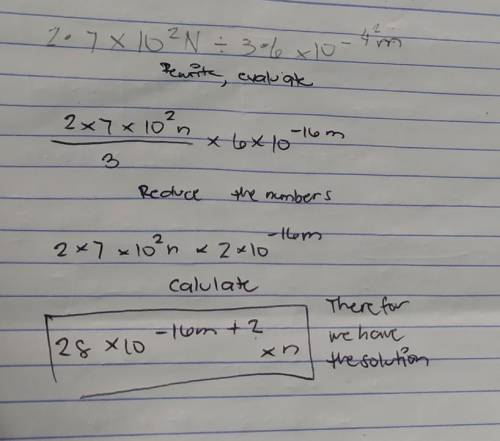 2.7 × 10² N ÷ 3.6 × 10⁻⁴² m
Rewrite, evaluate
2 × 7 × 10² n / 3 × 6 × 10⁻¹⁶ᵐ
Reduce the numbers
2 × 7 × 10² n × 2 × 10⁻¹⁶ᵐ
Calulate
28 × 10⁻¹⁶ᵐ ⁺ ² × n
Therefor
we have
the solution